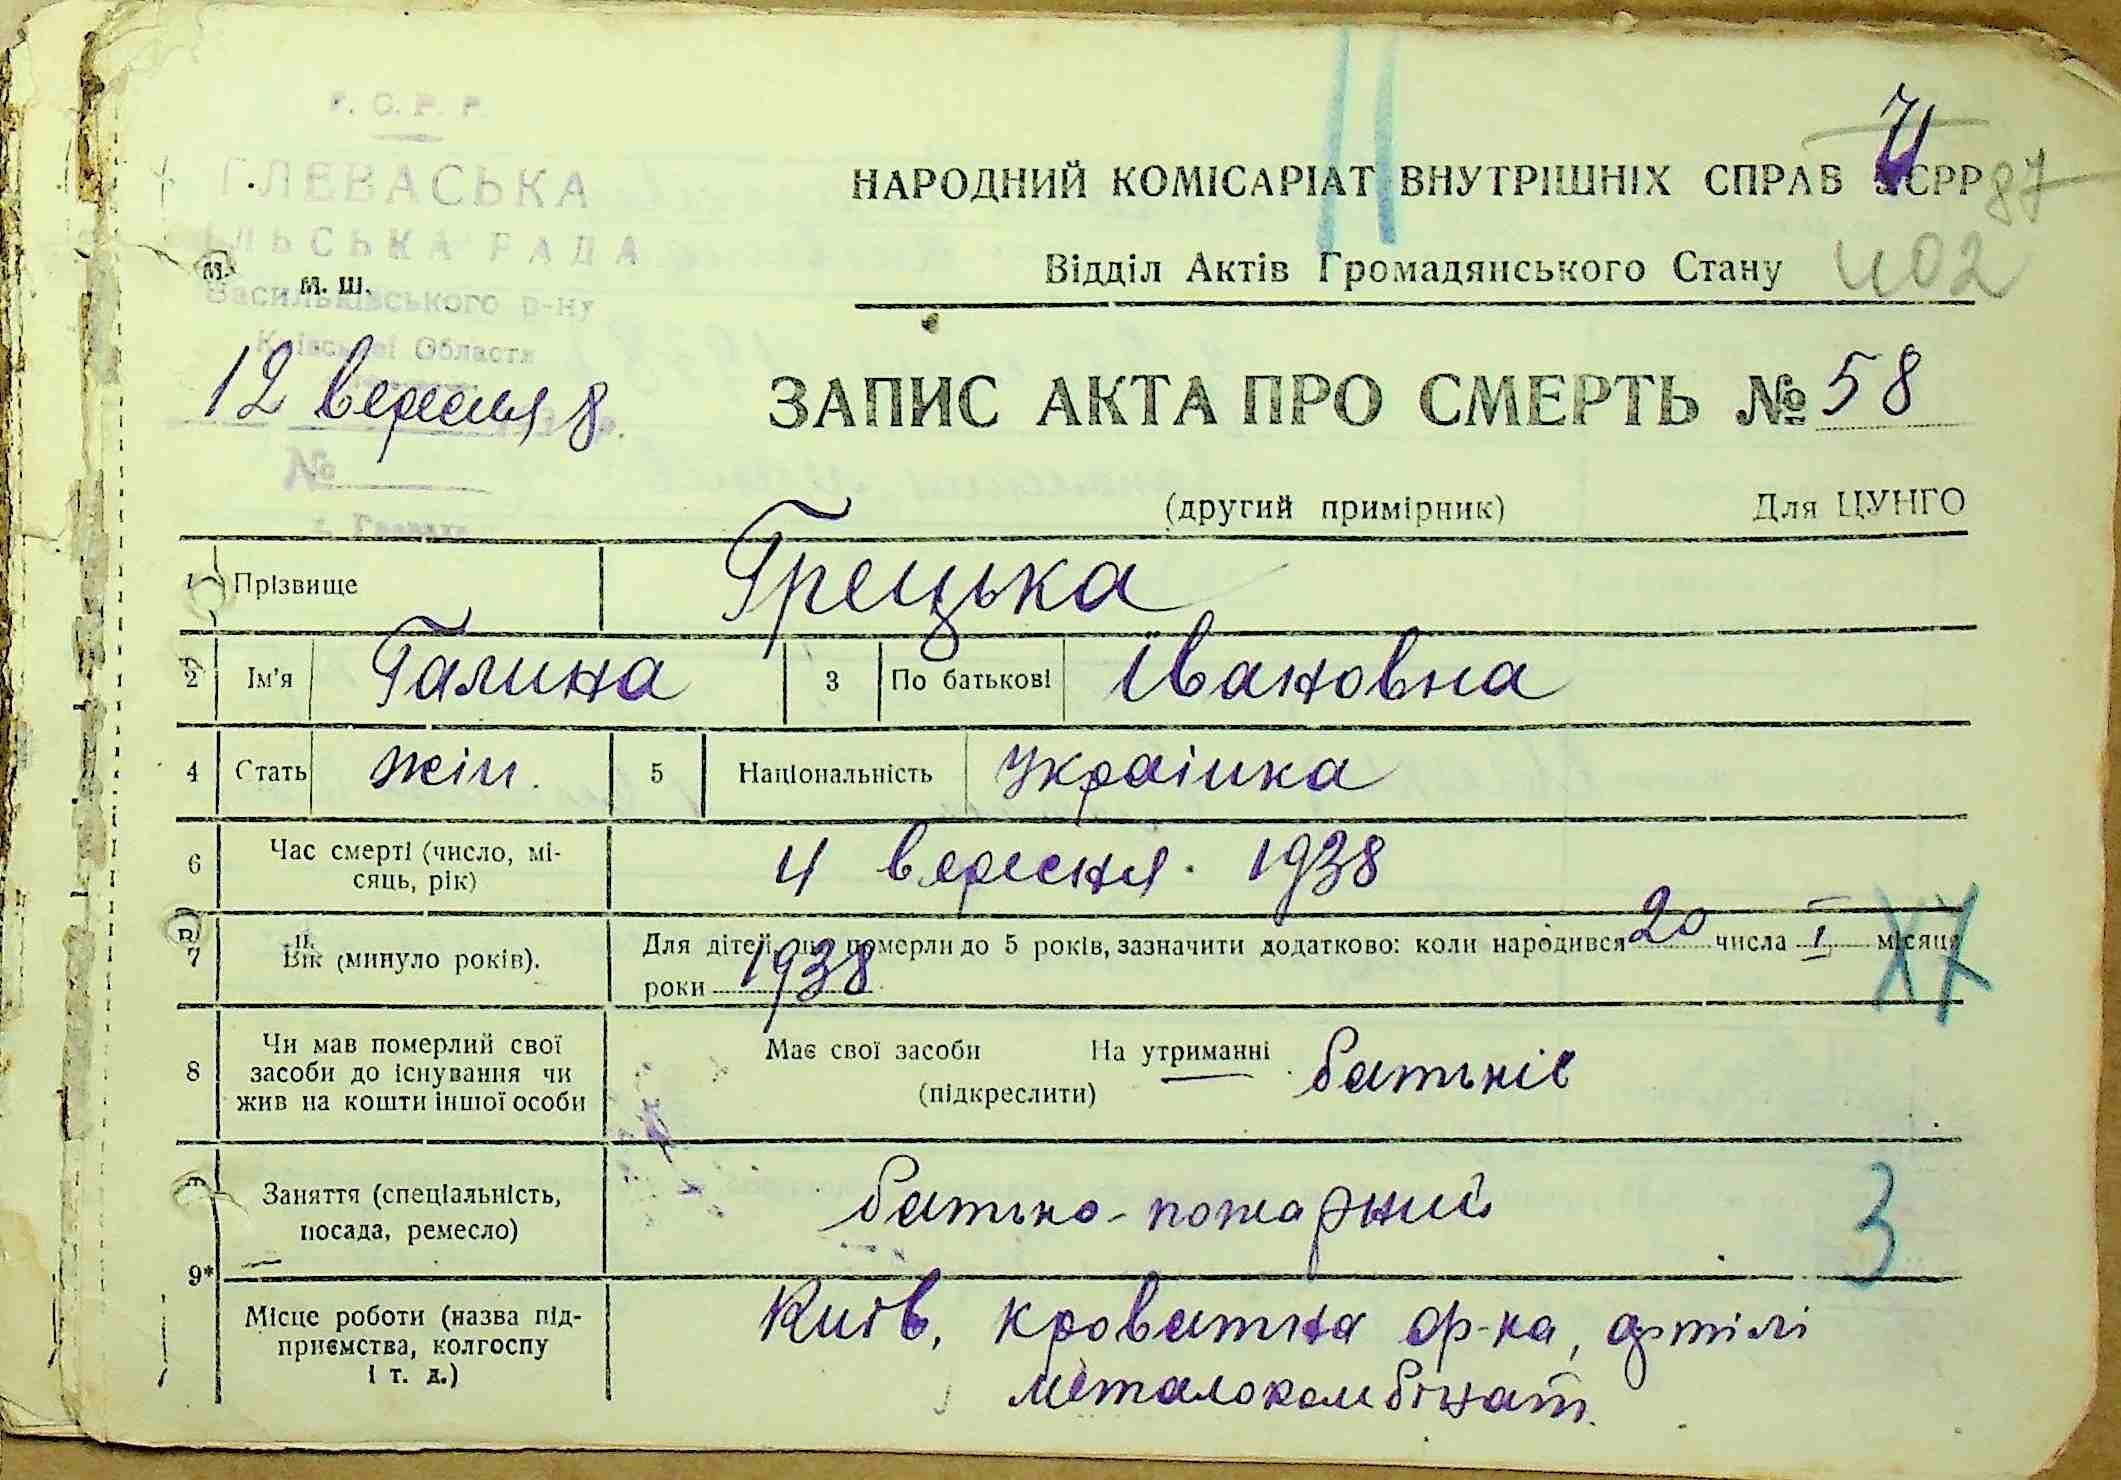 У. С. Р. Р.
ГЛЕВАСЬКА
СІЛЬСЬКА РАДА
Васильківського р-ну
Київської Області
12 вересня 8
№
с. Глеваха
М. Ш.
НАРОДНИЙ КОМІСАРІАТ ВНУТРІШНІХ СПРАВ УСРР
87
Відділ Актів Громадянського Стану
402
ЗАПИС АКТА ПРО СМЕРТЬ № 58
(другий примірник) Для ЦУНГО
1 Прізвище Грецька
2 Ім'я Галина 3 По батькові Івановна
4 Стать жін. 5 Національність Українка
6 Час смерті (число, мі-
сяць, рік) 4 вересня. 1938
7 Вік (минуло років). Для дітей, що померли до 5 років, зазначити додатково: коли народився 20 числа I місяця
роки 1938
8 Чи мав померлий свої
засоби до існування чи
жив на кошти іншої особи
Має свої засоби На утриманні батьків
(підкреслити)
9* Заняття (спеціальність,
посада, ремесло) батько-пожарний
3
Місце роботи (назва під-
приємства, колгоспу
і т. д.)
Київ, кроватна ф-ка,
металокомбінат.